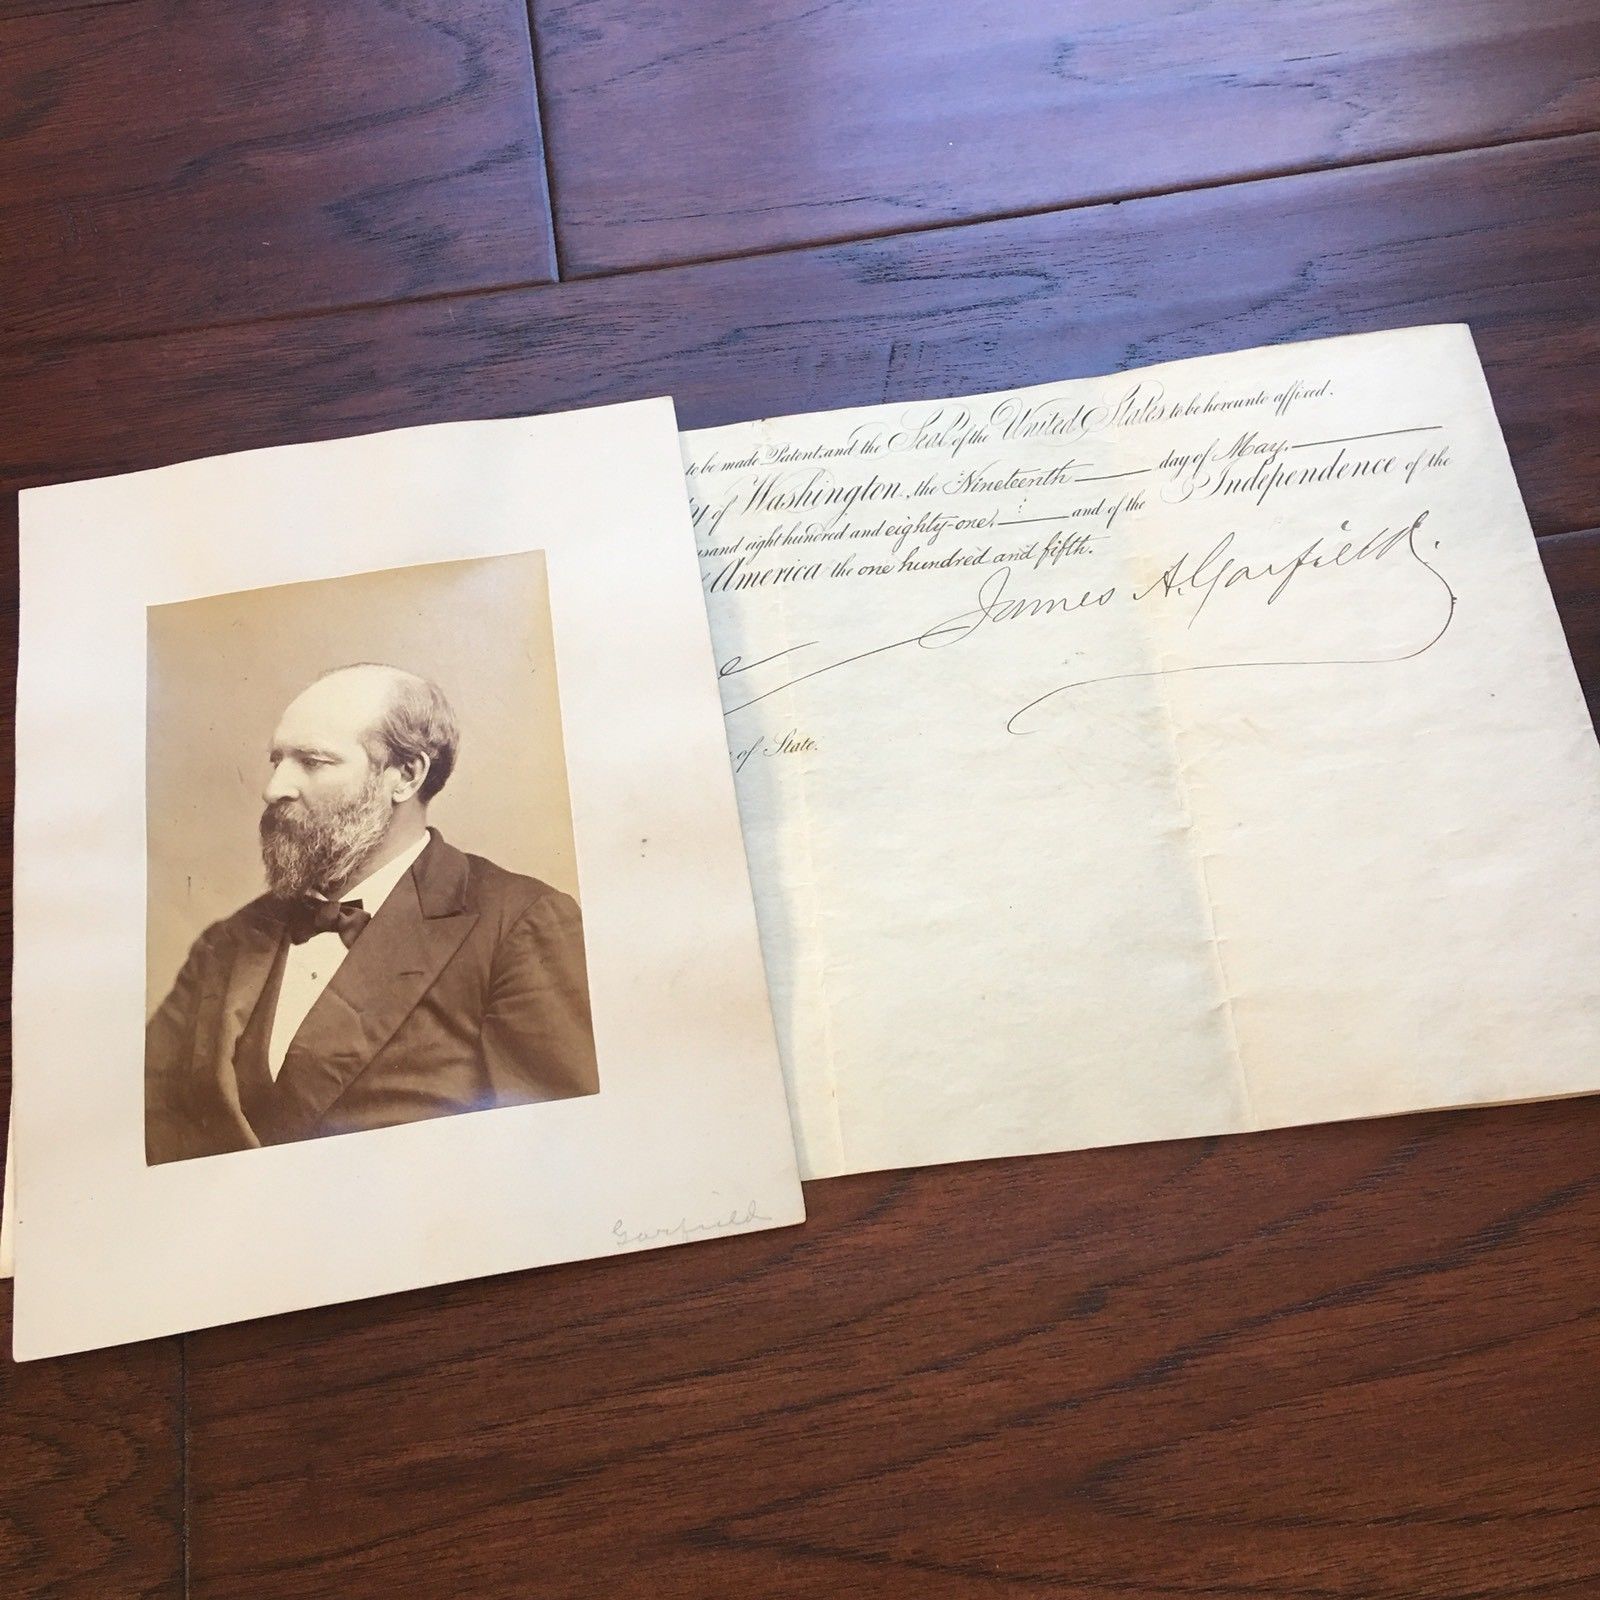 to be made Patent, and the Seal of the United States to be hereunto affixed.
of Washington, the Nineteenth day of May,
eight hundred and eighty-one, and of the Independence of the
America the one hundred and fifth.
James A. Garfield.
of State.
Garfield